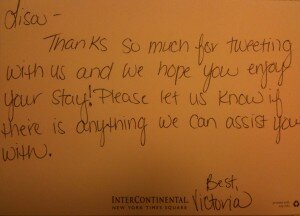 Lisa -
Thanks so much for tweeting
with us and we hope you enjoy
your stay! Please let us know if
there is anything we can assist you
with.
Best,
Victoria
INTERCONTINENTAL
NEW YORK TIMES SQUARE